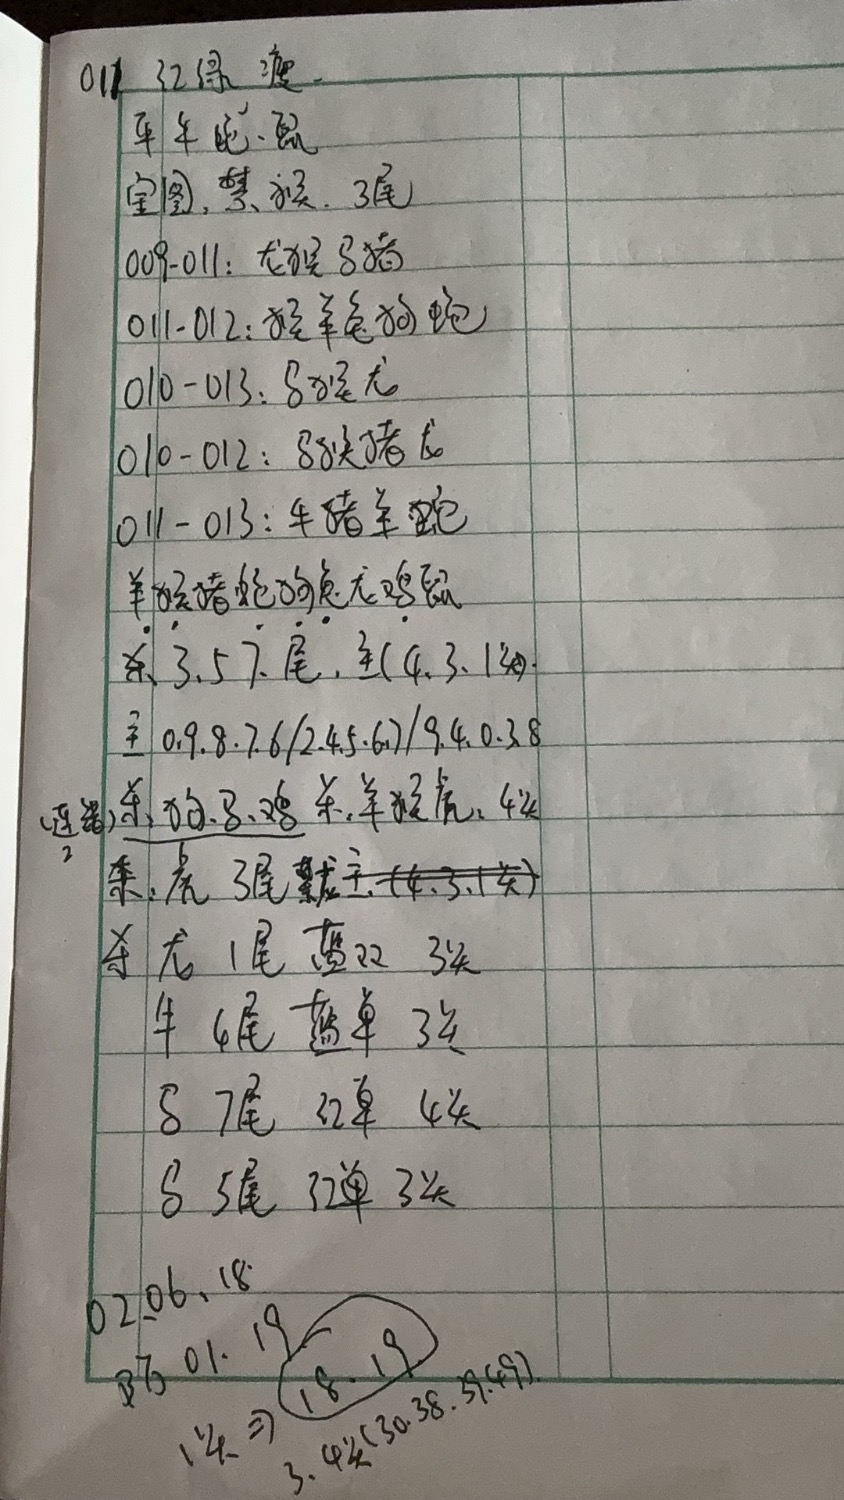 011 红绿
牛 蛇.鼠
宝图. 禁. 猴. 3尾
009-011: 龙猴马猪
011-012: 猴羊兔狗蛇
010-013: 马猴龙
010-012: 马猴猪龙
011-013: 牛猪羊蛇
羊猴猪蛇狗兔龙鸡鼠
杀. 3.5 7. 尾. 主(4.3.1头).
主 0.9.8.7.6/2.4.5.6.7/9.4.0.3.8
(连错2) 杀. 狗.马.鸡 杀. 羊猴虎. 4头
杀. 虎 3尾 主 (4.3.1头)
杀 龙 1尾 蓝双 3头
牛 4尾 蓝单 3头
马 7尾 红单 4头
马 5尾 红单 3头
02.06.18
防 01.19
1头⇒ 18.19
3.4头(30.38.39.49).